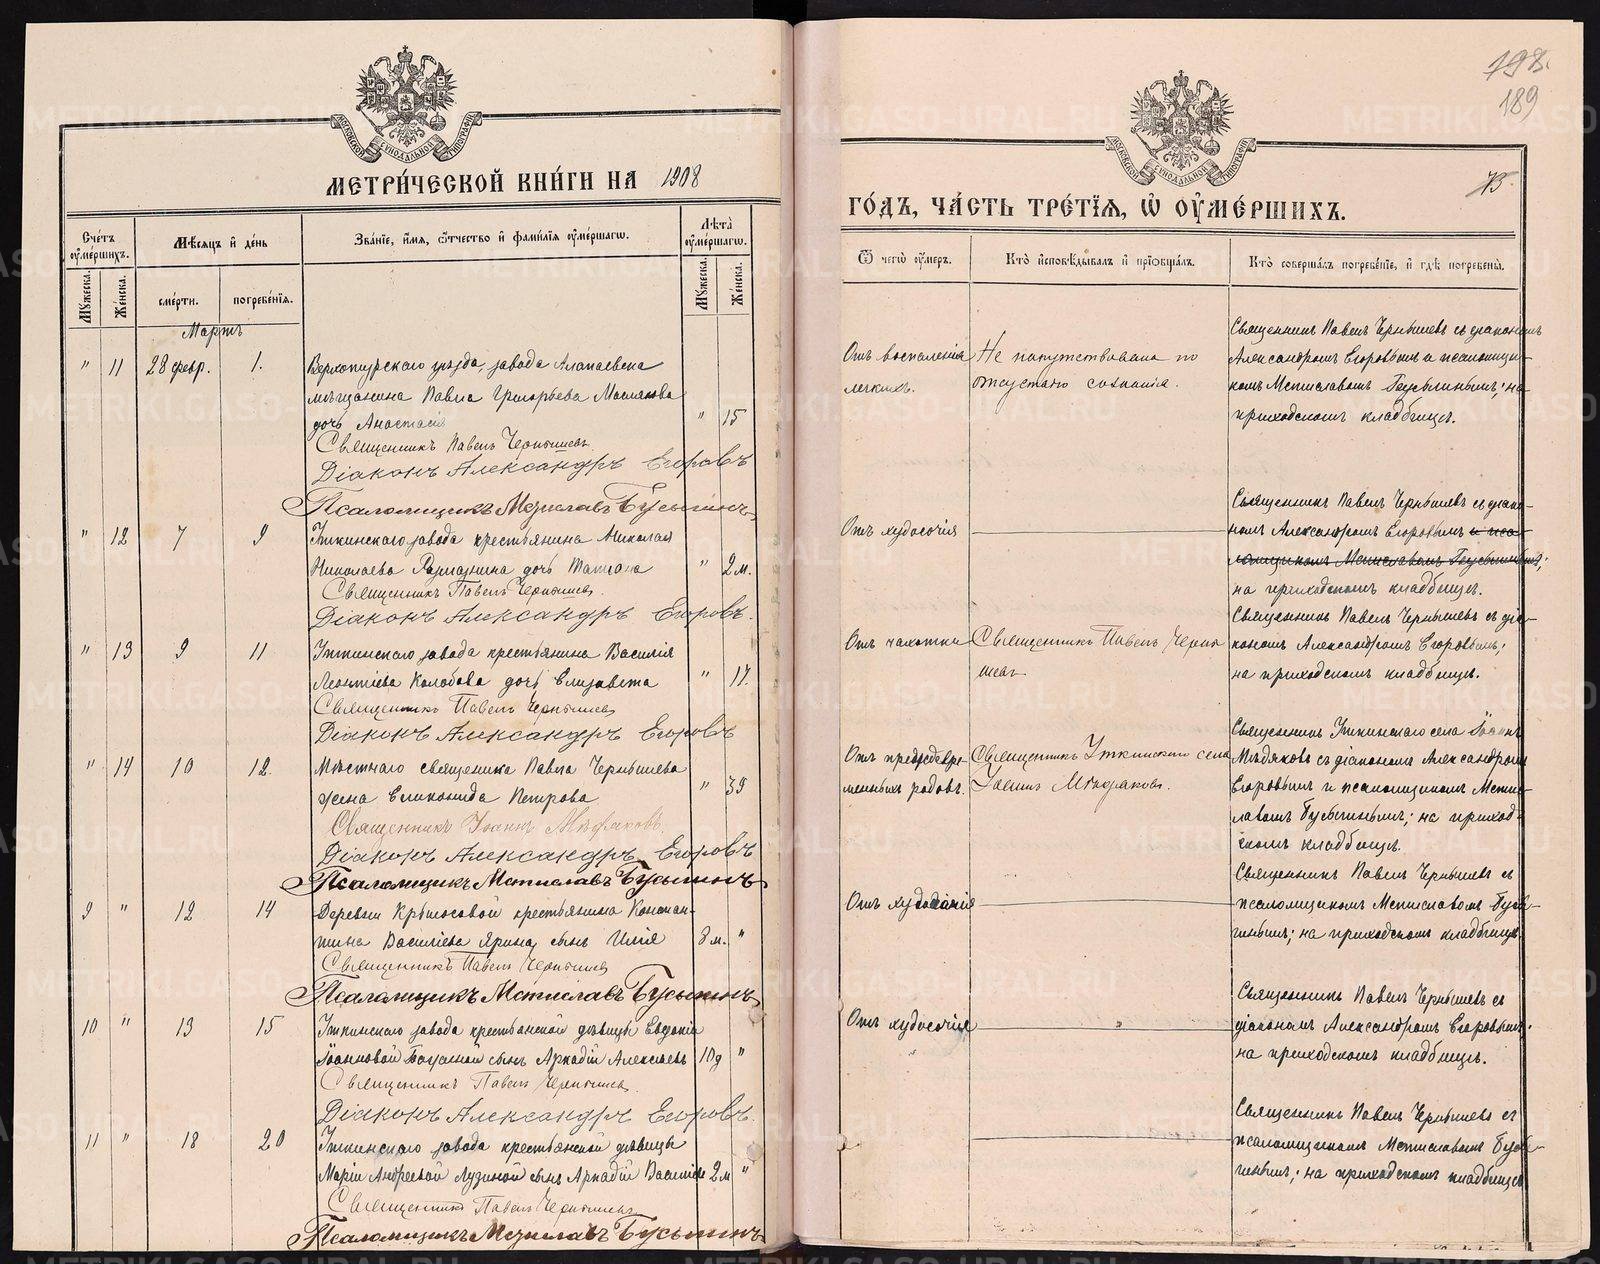 198.
189
73.
МОСКОВСКОЙ СѴНОДАЛЬНОЙ ТИПОГРАФІИ
МЕТРИ́ЧЕСКОЙ КНИ́ГИ НА 1908
Сче́тъ ᲂу҆ме́ршихъ.
Мѣ́сяцъ и҆ де́нь
Зва́нїе, и҆́мя, ѻ҆́тчество и҆ фами́лїя ᲂу҆ме́ршагѡ.
Лѣ́та ᲂу҆ме́ршагѡ.
Мꙋ́жеска.
Же́нска.
сме́рти.
погребе́нїя.
Мꙋ́жеска.
Же́нска.
Мартъ
" 11 28 февр. 1. Верхотурскаго уѣзда, завода Алапаевска
мѣщанина Павла Григорьева Маслякова
дочь Анастасія " 15
Священникъ Павелъ Чернышевъ
Діаконъ Александръ Егоровъ
Псаломщикъ Мстиславъ Бусыгинъ
" 12 7 9 Уткинскаго завода крестьянина Николая
Николаева дочь Татіана " 2 м.
Священникъ Павелъ Чернышевъ.
Діаконъ Александръ Егоровъ.
" 13 9 11 Уткинскаго завода крестьянина Василія
Леонтіева Колобова дочь Елизавета " 17.
Священникъ Павелъ Чернышевъ
Діаконъ Александръ Егоровъ
" 14 10 12. Мѣстнаго священника Павла Чернышева
жена Еликонида Петрова " 39
Священникъ Іоаннъ Мѣдяковъ.
Діаконъ Александръ Егоровъ
Псаломщикъ Мстиславъ Бусыгинъ
9 " 12 14 Деревни Крылосовой крестьянина Констан-
тина Василіева Ярина, сынъ Илія 8 м. "
Священникъ Павелъ Чернышевъ
Псаломщикъ Мстиславъ Бусыгинъ
10 " 13 15 Уткинскаго завода крестьянской дѣвицы Евдокіи
Іоанновой сынъ Аркадій Алексѣевъ 10 д "
Священникъ Павелъ Чернышевъ.
Діаконъ Александръ Егоровъ.
11 " 18 20 Уткинскаго завода крестьянской дѣвицы
Маріи Андреевой Лузиной сынъ Аркадій Василіевъ 2 м "
Священникъ Павелъ Чернышевъ
Псаломщикъ Мстиславъ Бусыгинъ
МОСКОВСКОЙ СѴНОДАЛЬНОЙ ТИПОГРАФІИ
ГО́ДЪ, ЧА́СТЬ ТРЕ́ТЇѦ, Ѡ҆ ОУ҆МЕ́РШИХЪ.
Ѿ чегѡ̀ ᲂу҆́меръ.
Кто̀ и҆сповѣ́дывалъ и҆ прїѡбща́лъ.
Кто̀ соверша́лъ погребе́нїе, и҆ гдѣ̀ погребены̀.
Отъ воспаленія
легкихъ.
Не напутствована по
отсутствію сознанія.
Священникъ Павелъ Чернышевъ съ діакономъ
Александромъ Егоровымъ и псаломщи-
комъ Мстиславомъ Бусыгинымъ; на
приходскомъ кладбищѣ.
Отъ худосочія
Священникъ Павелъ Чернышевъ съ діако-
номъ Александромъ Егоровымъ и пса-
ломщикомъ Мстиславомъ Бусыгинымъ;
на приходскомъ кладбищѣ.
Отъ чахотки
Священникъ Павелъ Черны
шевъ
Священникъ Павелъ Чернышевъ съ діа-
кономъ Александромъ Егоровымъ;
на приходскомъ кладбищѣ.
Отъ преждевре-
менныхъ родовъ.
Священникъ Уткинскаго села
Іоаннъ Мѣдяковъ.
Священникъ Уткинскаго села Іоаннъ
Мѣдяковъ съ діакономъ Александромъ
Егоровымъ и псаломщикомъ Мсти-
славомъ Бусыгинымъ; на приход-
скомъ кладбищѣ.
Отъ
Священникъ Павелъ Чернышевъ съ
псаломщикомъ Мстиславомъ Бусы-
гинымъ; на приходскомъ кладбищѣ.
Отъ худосочія
Священникъ Павелъ Чернышевъ съ
діакономъ Александромъ Егоровымъ;
на приходскомъ кладбищѣ.
Священникъ Павелъ Чернышевъ съ
псаломщикомъ Мстиславомъ Бусы-
гинымъ; на приходскомъ кладбищѣ
METRIKI.GASO-URAL.RU